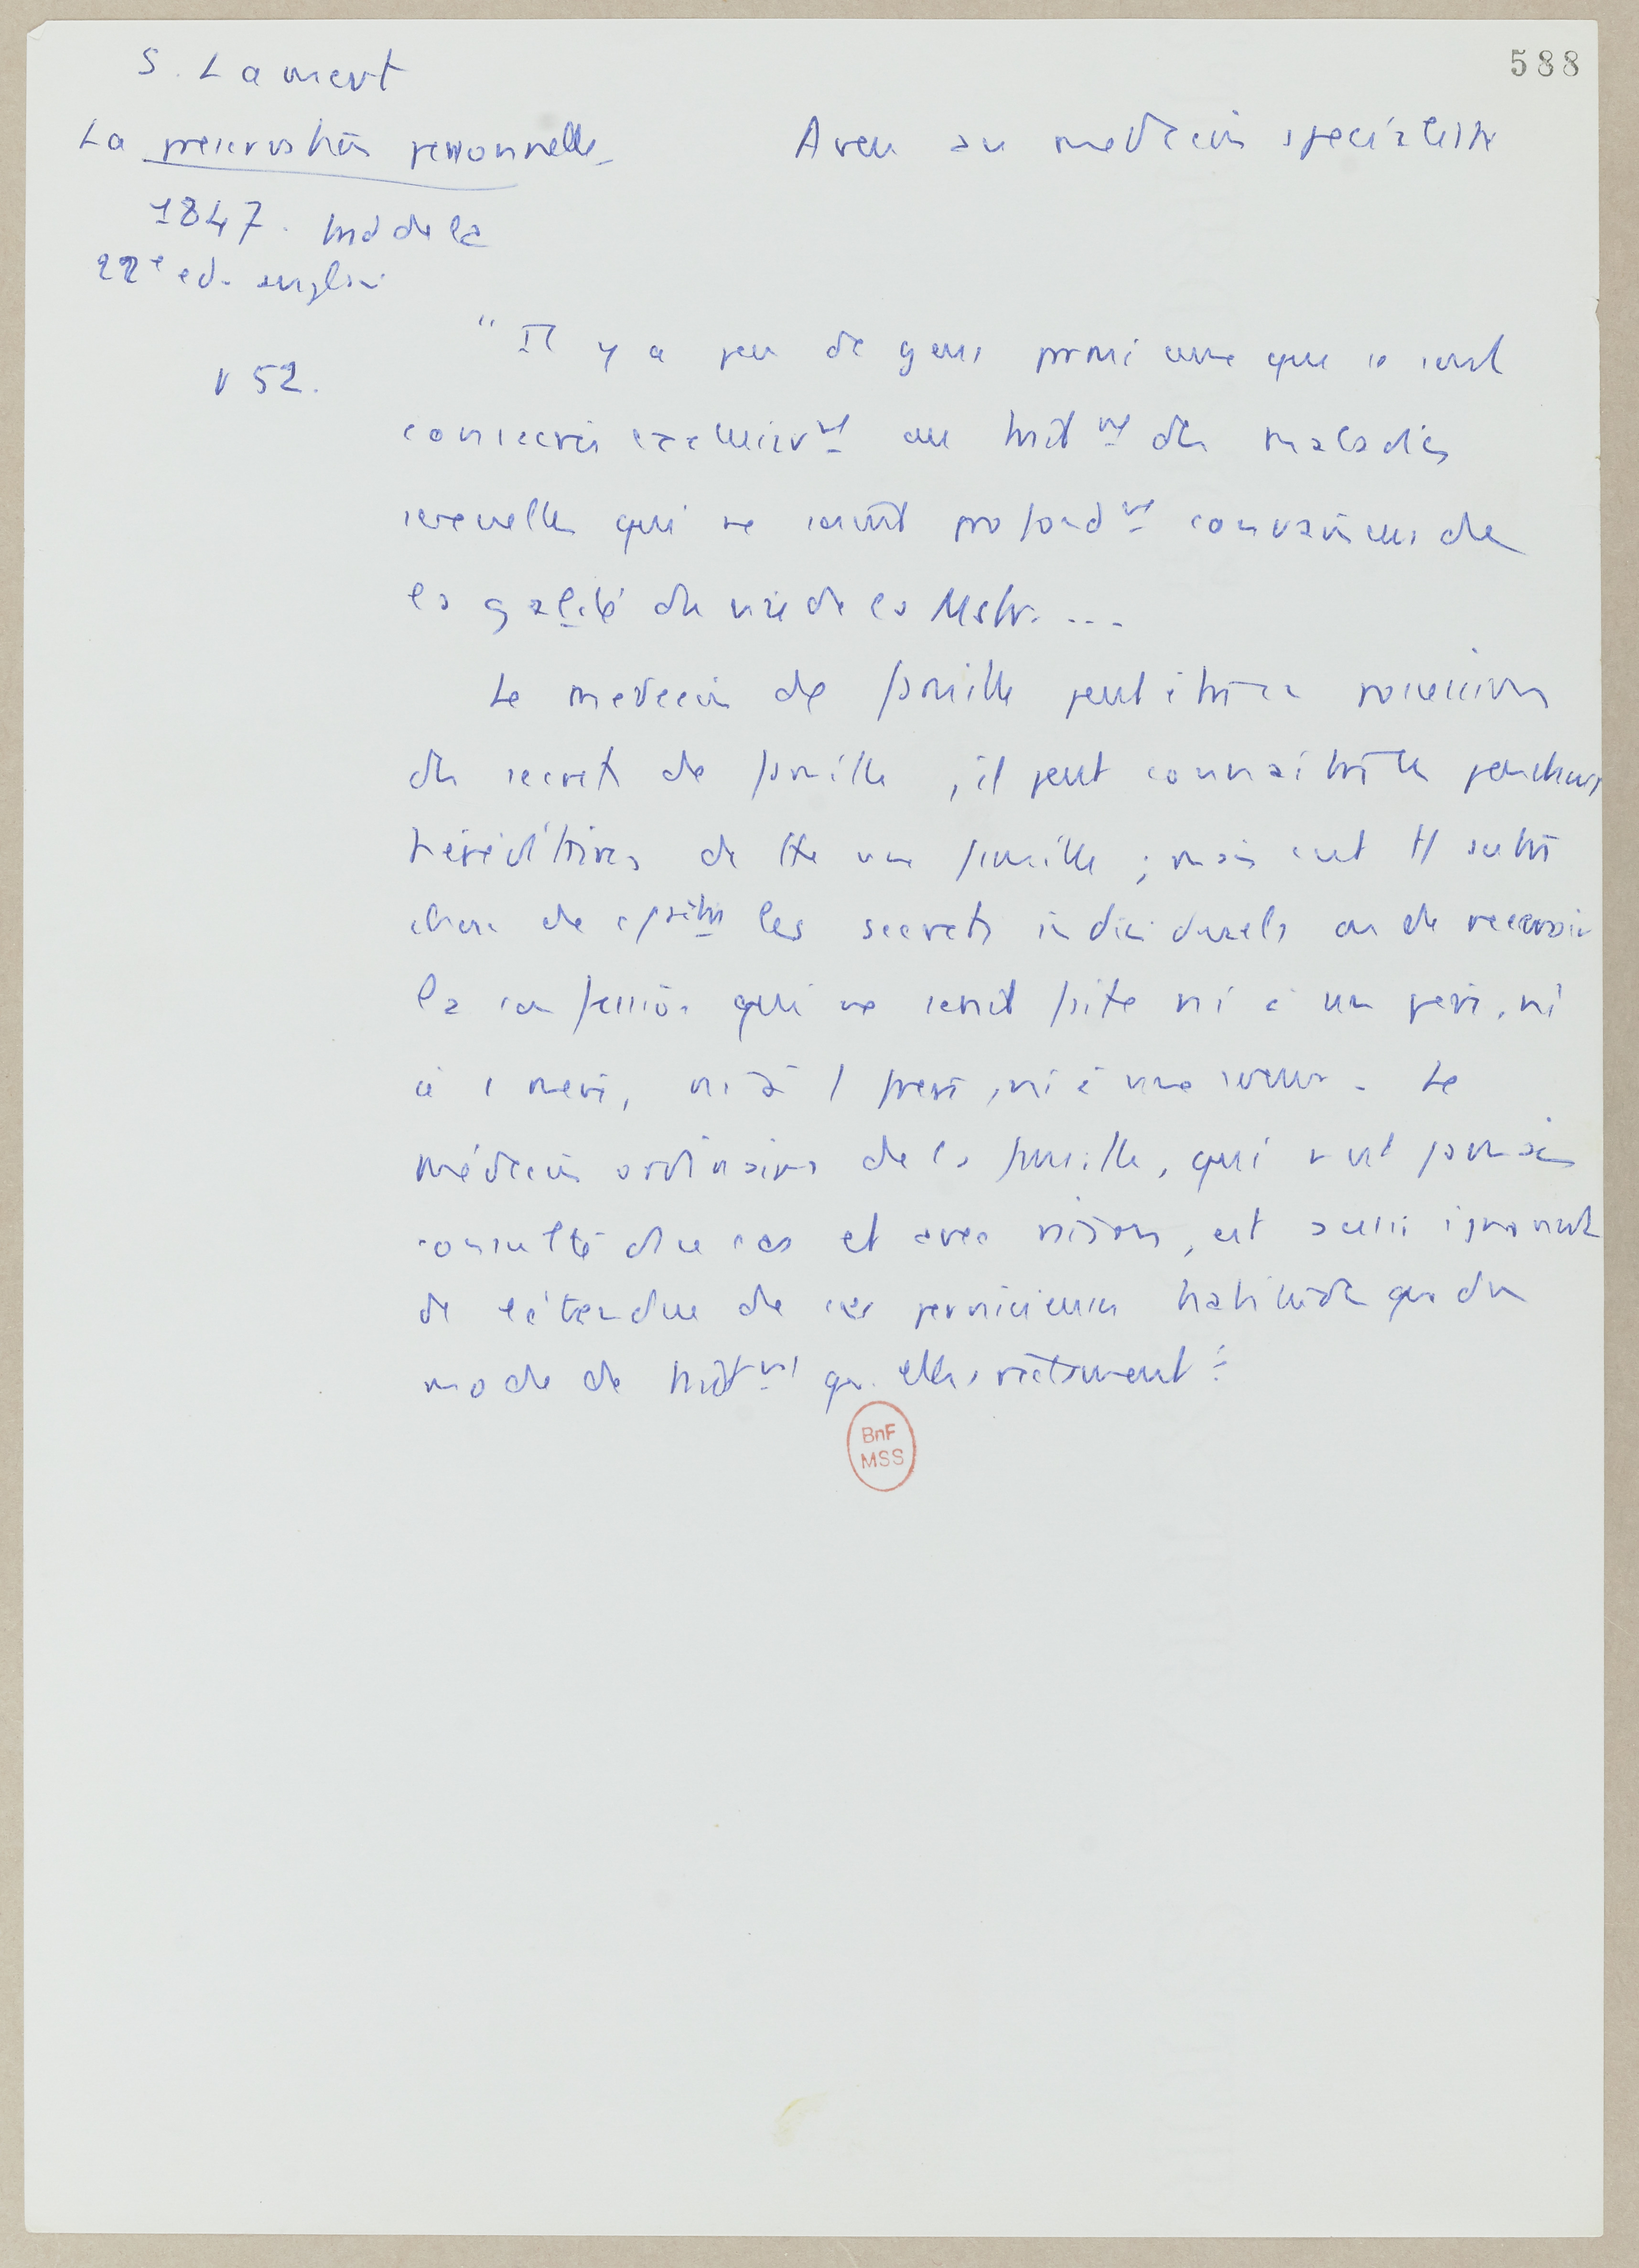 588
S. Lamert
La preservation personnelle
Aveu au medecin specialiste
1847. trad de la
22e ed. anglaise
p 52.
"Il y a peu de gens parmi ceux qui se sont
consacrés exclusivt au traitt des maladies
sexuelles qui ne soient profondt convaincus de
la gravité du vice de la Mstr. ...
Le medecin de famille peut être en possession
des secrets de famille, il peut connaître les penchants
héréditaires de tte une famille ; mais c'est tt autre
chose de connaître les secrets individuels ou de recevoir
la confession qui ne serait faite ni à un père, ni
à 1 mère, ni à 1 frère, ni à une soeur. Le
médecin ordinaire de la famille, qui n'est jamais
consulté du cas et avec raison, est aussi ignorant
de l'étendue de ces pernicieuses habitudes que du
mode de traitt qu'elles réclament".
BnF
MSS